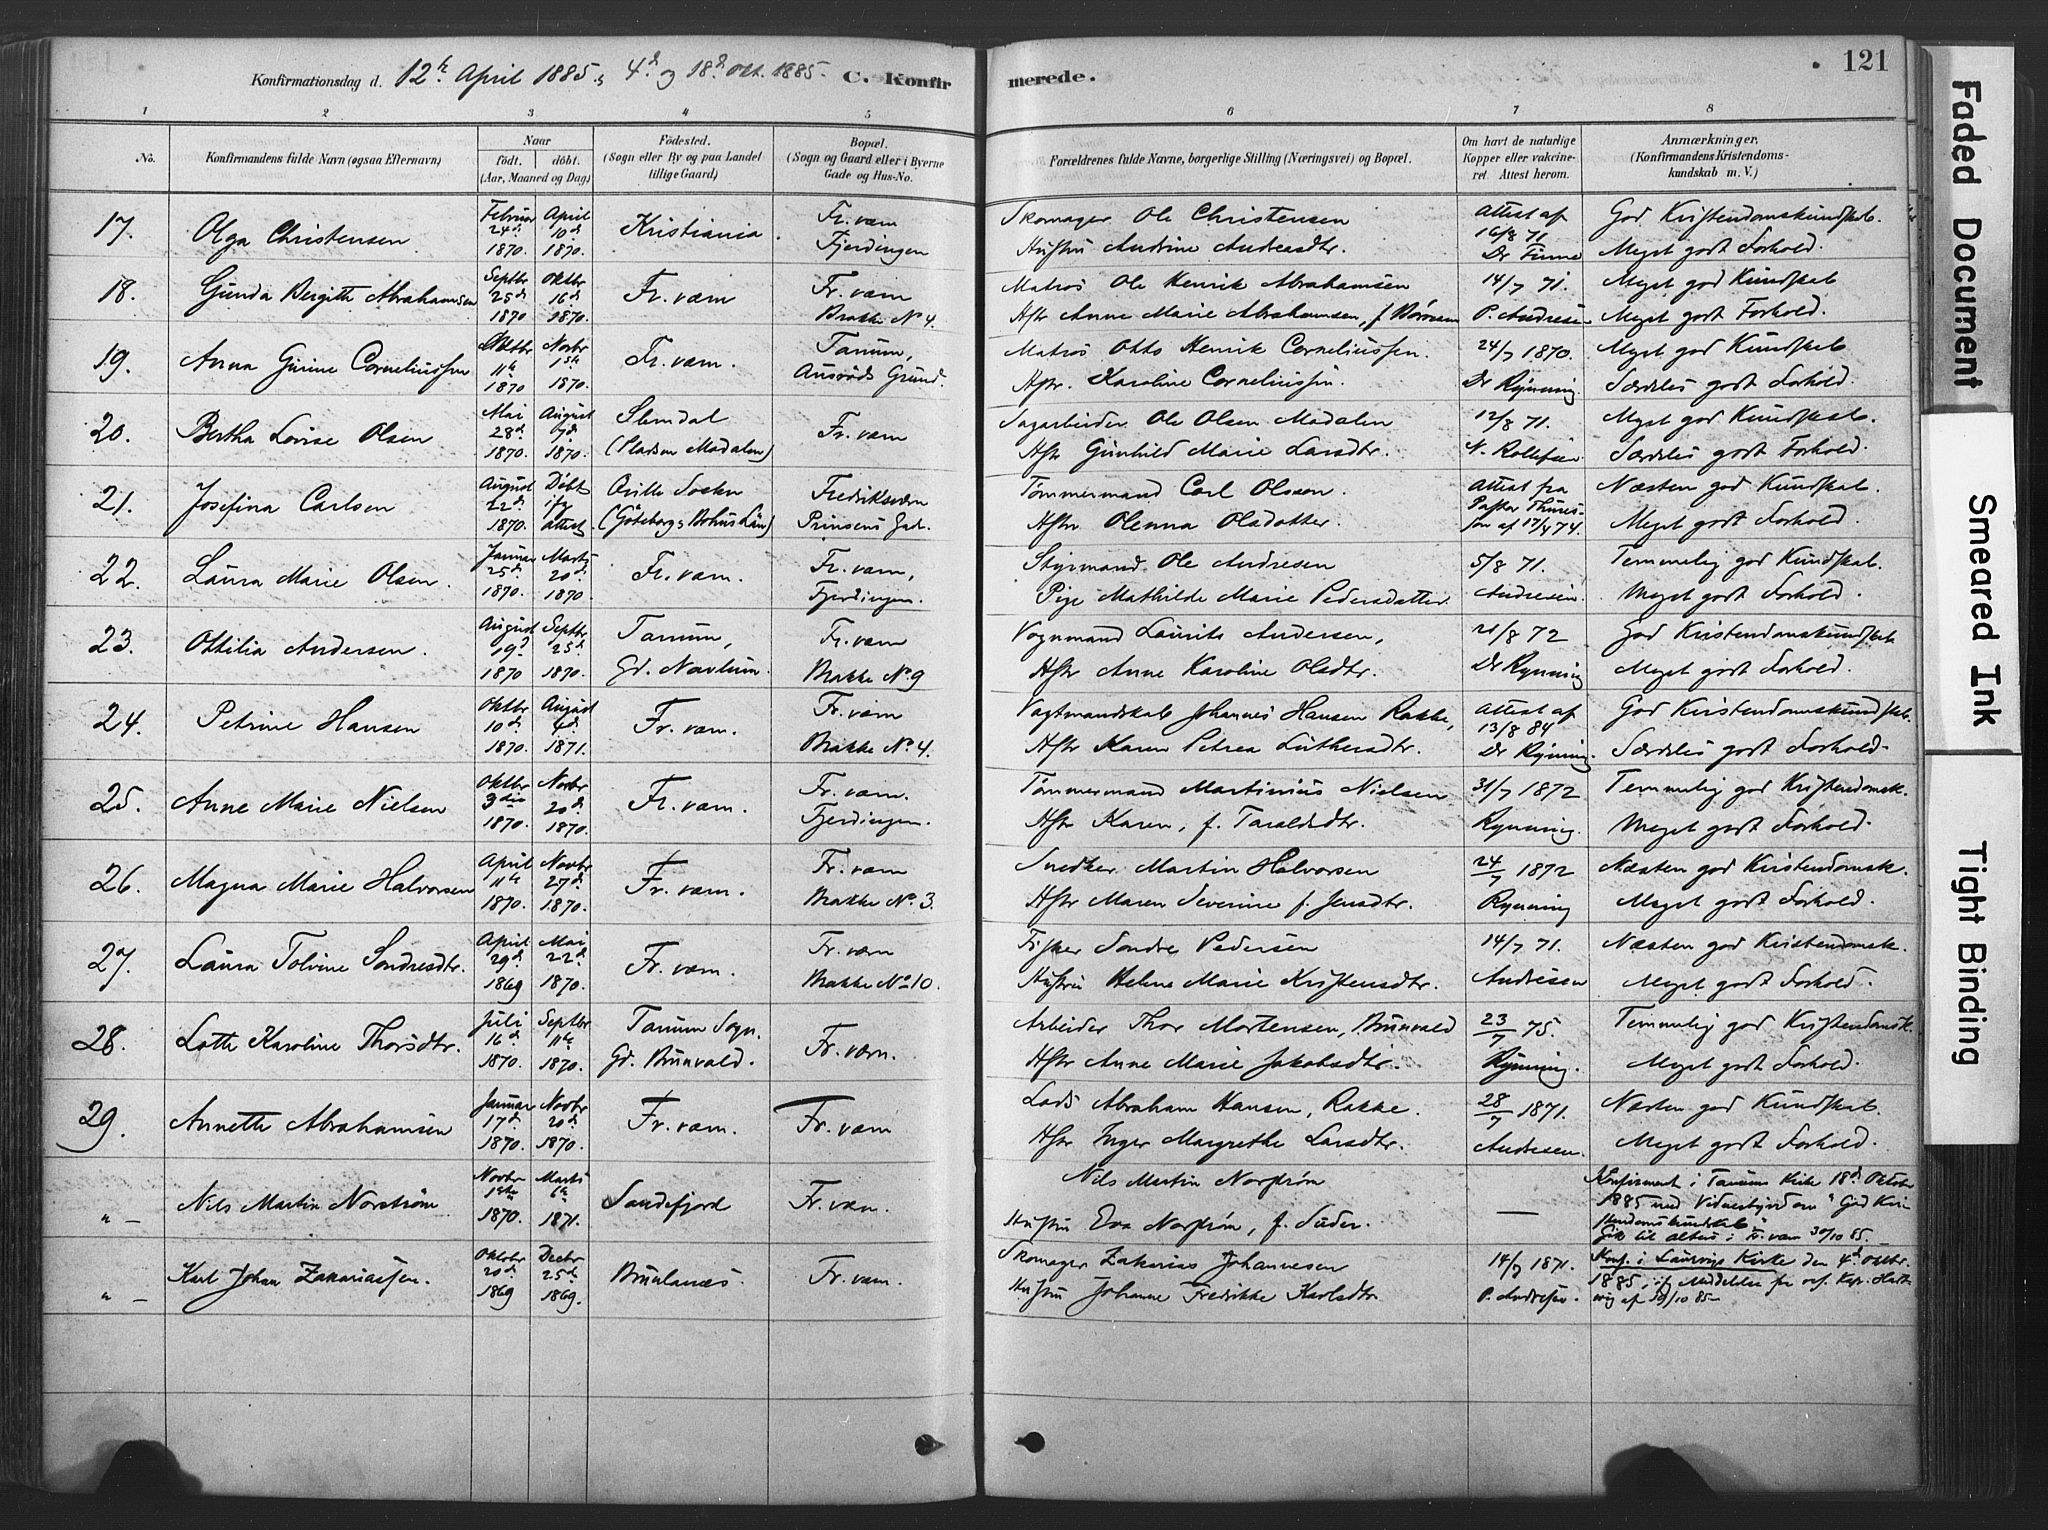 Konfirmationsdag d. 12te April 1885, 4d og 18d Okt. 1885. C. Konfirmerede.
121
1 2 3 4 5 6 7 8
No.
Konfirmandens fulde Navn (ogsaa Efternavn)
Naar
födt. döbt.
(Aar, Maaned og Dag)
Födested.
(Sogn eller By og paa Landet
tillige Gaard)
Bopæl.
(Sogn og Gaard eller i Byerne
Gade og Hus-No.
Forældrenes fulde Navne, borgerlige Stilling (Næringsvei) og Bopæl.
Om havt de naturlige
Kopper eller vakcine-
ret. Attest herom.
Anmærkninger.
(Konfirmandens Kristendoms-
kundskab m. V.)
17. Olga Christensen
Februar 24d 1870.
April 10d 1870.
Kristiania.
Fr. værn
Fjerdingen
Skomager Ole Christensen
Hustru Andrine Andreasdtr.
Attest af
16/8 71
Dr Finne
God Kristendomskundskab.
Meget godt Forhold.
18. Gunda Bergitte Abrahamsen
Septbr 25d 1870
Oktbr 16d 1870.
Fr. værn
Fr. værn
Brakke No 4.
Matros Ole Henrik Abrahamsen
Hstr Anne Marie Abrahamsen, f.
14/7 71.
P. Andresen
Meget god Kundskab
Meget godt Forhold.
19. Anna Gurine Corneliussen
Oktbr 11te 1870
Novbr 1870.
Fr. værn.
Tanum,
Grund.
Matros Otto Henrik Corneliussen.
Hstr. Karoline Corneliussen.
24/7 1870.
Dr Rynning.
Meget god Kundskab
Særdeles godt Forhold.
20. Bertha Lovise Olsen
Mai 28d 1870.
August 7d 1870.
Slemdal
(Pladsen Modalen)
Fr. værn
Sagarbeider Ole Olsen Modalen
Hstr Gunhild Marie Larsdtr.
12/8 71.
N. Rollefsen
Meget god Kundskab.
Særdeles godt Forhold.
21. Josefina Carlsen
August 22d 1870.
Döbt if attest
Socken
(Göteborg & Bohus Län)
Fredriksværn
Prinsens Gad.
Tømmermand Carl Olsson.
Hstr Olenna Olsdotter.
Attest fra
Pastor
af 17/4 74.
Næsten god Kundskab.
Meget godt Forhold.
22. Laura Marie Olsen.
Januar 25d 1870.
Marts 20d 1870.
Fr. værn.
Fr. værn,
Fjerdingen.
Styrmand Ole Andresen
Pige Mathilde Marie Pedersdatter.
5/8 71.
Andresen.
Temmelig god Kundskab.
Meget godt Forhold.
23. Ottilia Andersen.
August 19d 1870
Septbr 25d 1870.
Tanum,
Gd. Navlum.
Fr. værn
Brakke No 9
Vognmand Laurits Andersen,
Hstr Anne Karoline Olsdtr.
21/8 72
Dr Rynning
God Kristendomskundskab
Meget godt Forhold.
24. Petrine Hansen
Oktbr 10d 1870.
August 6d 1871.
Fr. værn.
Fr. værn
Brakke No. 4.
Vagtmandskab Johannes Hansen Rakke,
Hstr Karen Petrea Luthersdtr.
Attest af
13/8 84
Dr Rynning.
God Kristendomskundskab.
Særdeles godt Forhold.
25. Anne Marie Nielsen
Oktbr 3die 1870.
Novbr 20d 1870.
Fr. værn.
Fr. værn.
Fjerdingen.
Tømmermand Martinius Nielsen
Hstr Karen, f. Taraldsdtr.
31/7 1872
Rynning.
Temmelig god Kristendomsk.
Meget godt Forhold.
26. Magna Marie Halvorsen
April 11te 1870.
Novbr 27d 1870.
Fr. værn.
Fr. værn
Brakke No. 3.
Snedker Martin Halvorsen
Hstr Maren Severine f. Jensdtr.
24/7 1872
Rynning
Næsten god Kristendomsk.
Meget godt Forhold.
27. Laura Tolvine Sondresdtr.
April 29d 1869
Mai 22d 1870.
Fr. værn.
Fr. værn
Brakke No 10.
Fisker Sondre Pedersen
Hustru Helene Marie Kristensdtr.
14/7 71.
Andresen
Næsten god Kristendomsk.
Meget godt Forhold.
28. Lotte Karoline Thorsdtr.
Juli 16d 1870.
Septbr 11te 1870.
Tanum Sogn.
Gd. Brunvald.
Fr. værn.
Arbeider Thor Mortensen, Brunvald
Hstr Anne Marie Jakobsdtr.
23/7 75.
Rynning.
Temmelig god Kristendomsk.
Meget godt Forhold.
29. Annette Abrahamsen
Januar 17d 1870.
Novbr 20d 1870.
Fr. værn.
Fr. værn
Lods Abraham Hansen, Rakke.
Hstr Inger Margrethe Larsdtr.
28/7 1871.
Andresen.
Næsten god Kundskab.
Meget godt Forhold.
" - Nils Martin Norstrøm
Novbr 1ste 1870.
Marts 6te 1871.
Sandefjord
Fr. værn.
Nils Martin Norstrøm
Hustru Eva Norstrøm, f. Suder.
—
Konfirmert i Tanum Kirke 18d Oktober
1885 med Vidnesbyrd om "God Kri-
stendomskundskab"
Gik til alters i Fr. værn 30/10 85.
" - Karl Johan Zakariassen.
Oktober 20d 1869
Decbr 25d 1869.
Brunlanæs.
Fr. værn.
Skomager Zakarias Johannesen
Hustru Johanne Fredrikke Karlsdtr.
14/7 1871.
P. Andresen.
Konf. i Laurvigs Kirke den 4d Oktbr.
1885, if Meddelelse fra res. Kap. Hart-
wig af 19/10 85
Faded Document
Smeared Ink
Tight Binding